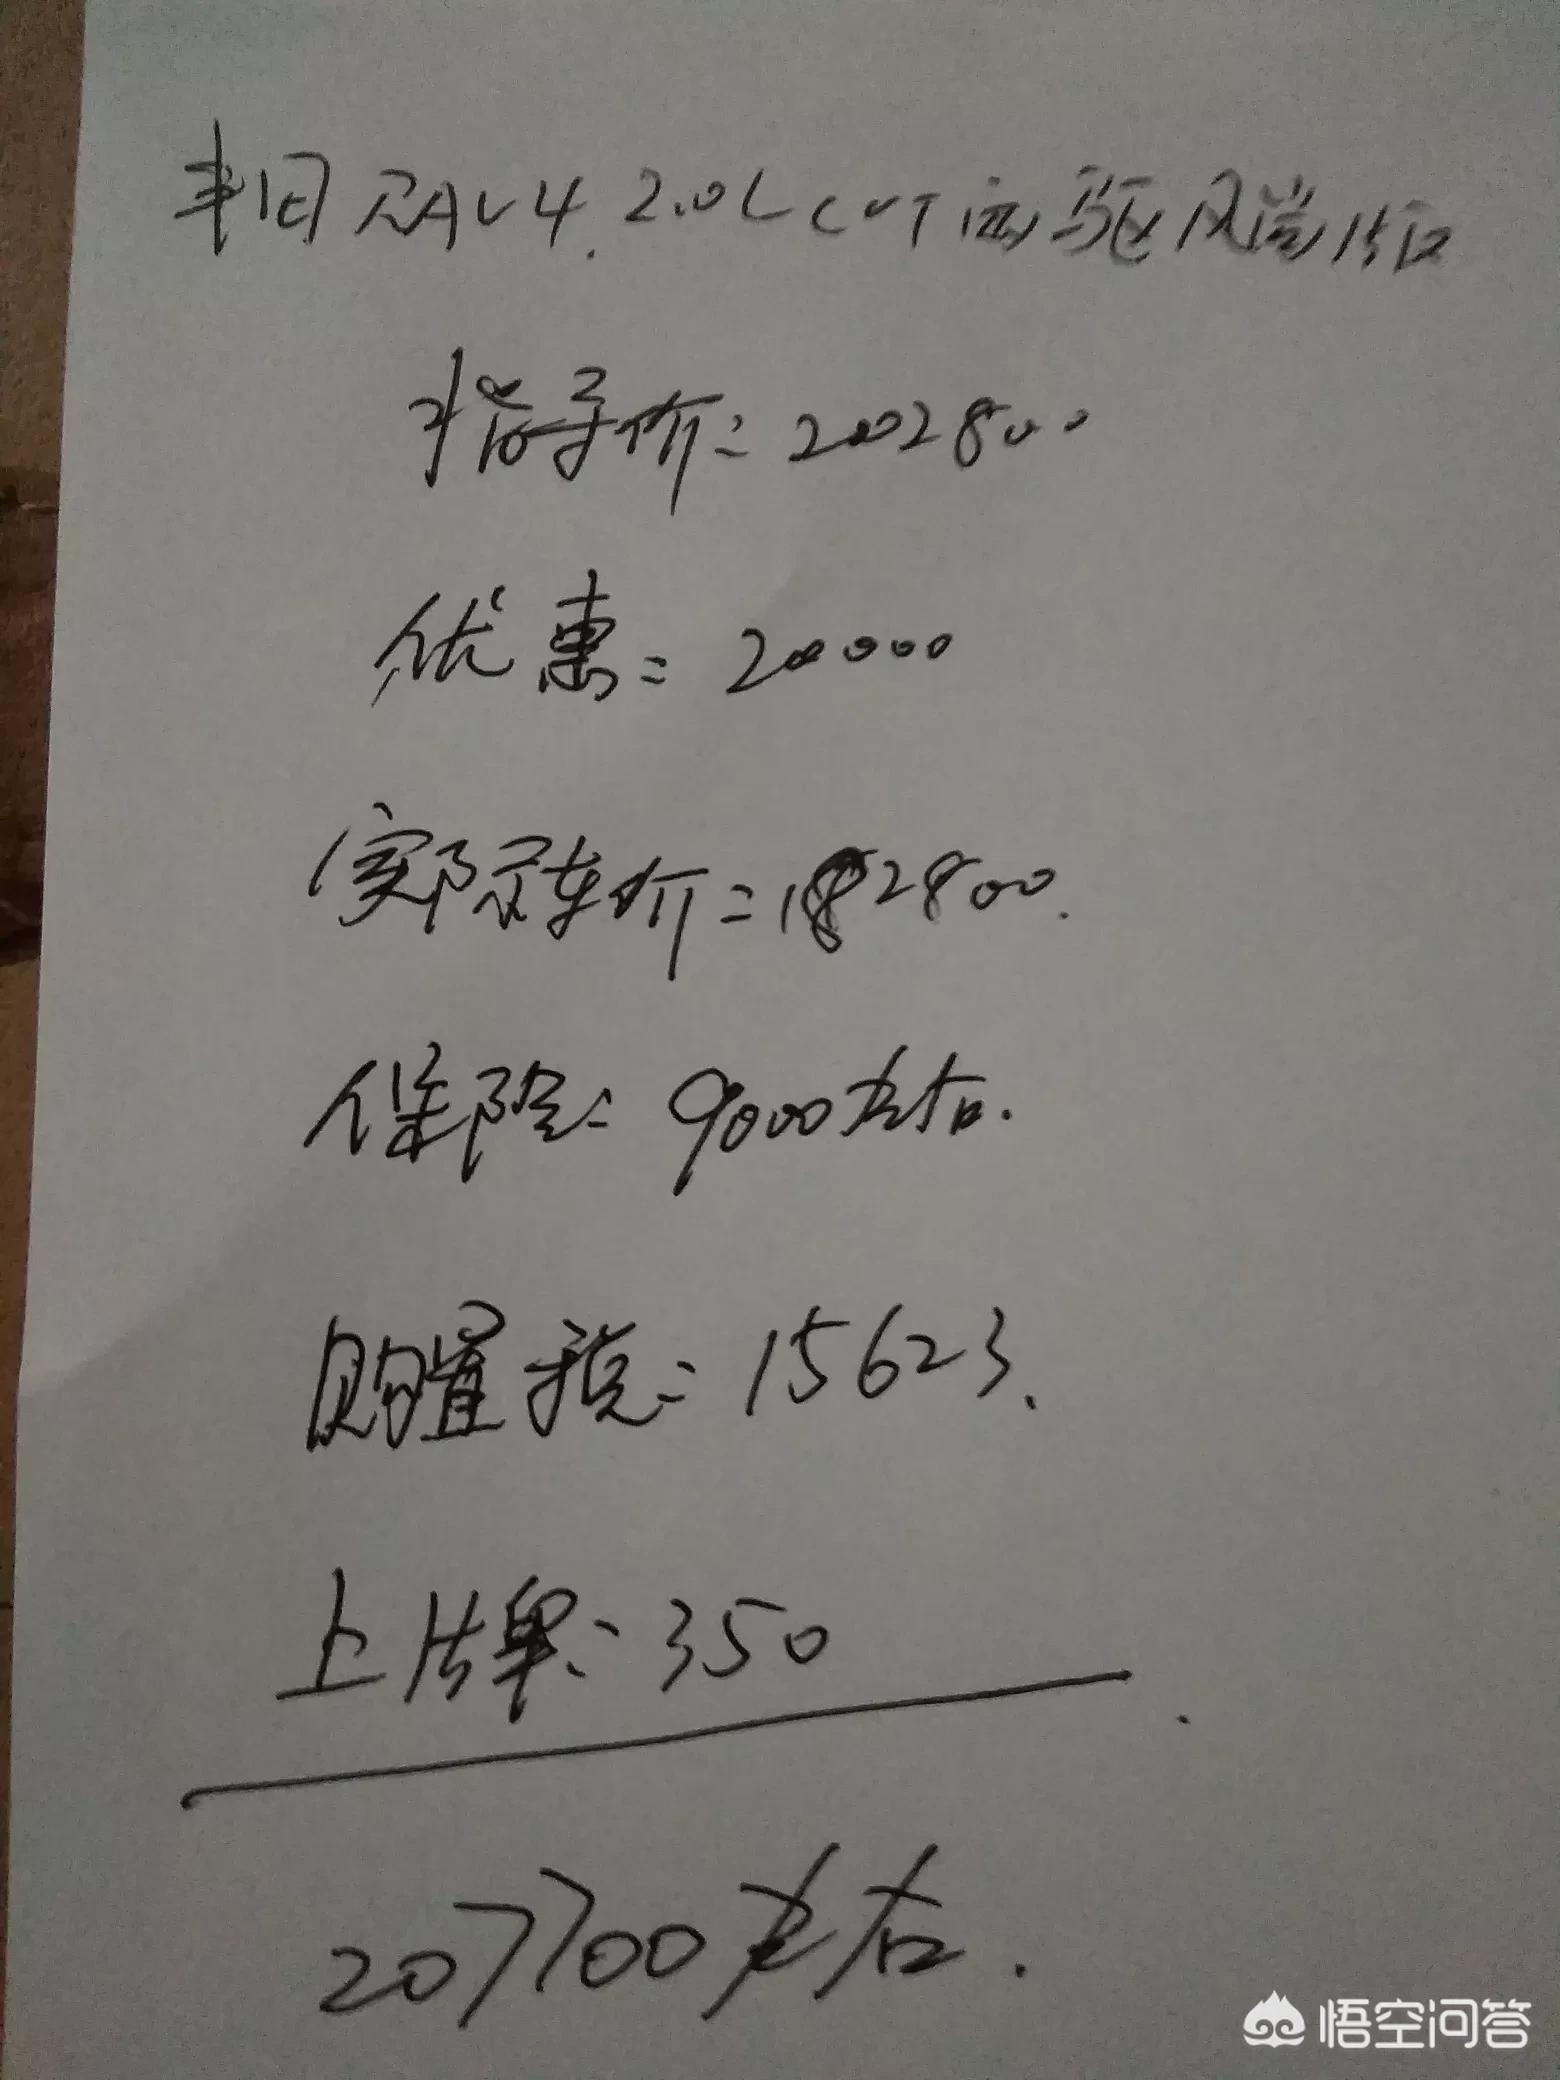 丰田RAV4.2.0L CVT两驱风尚版
指导价=202800
优惠=20000
实际车价=182800.
保险=9000左右.
购置税=15623.
上牌=350
207700左右.
悟空问答